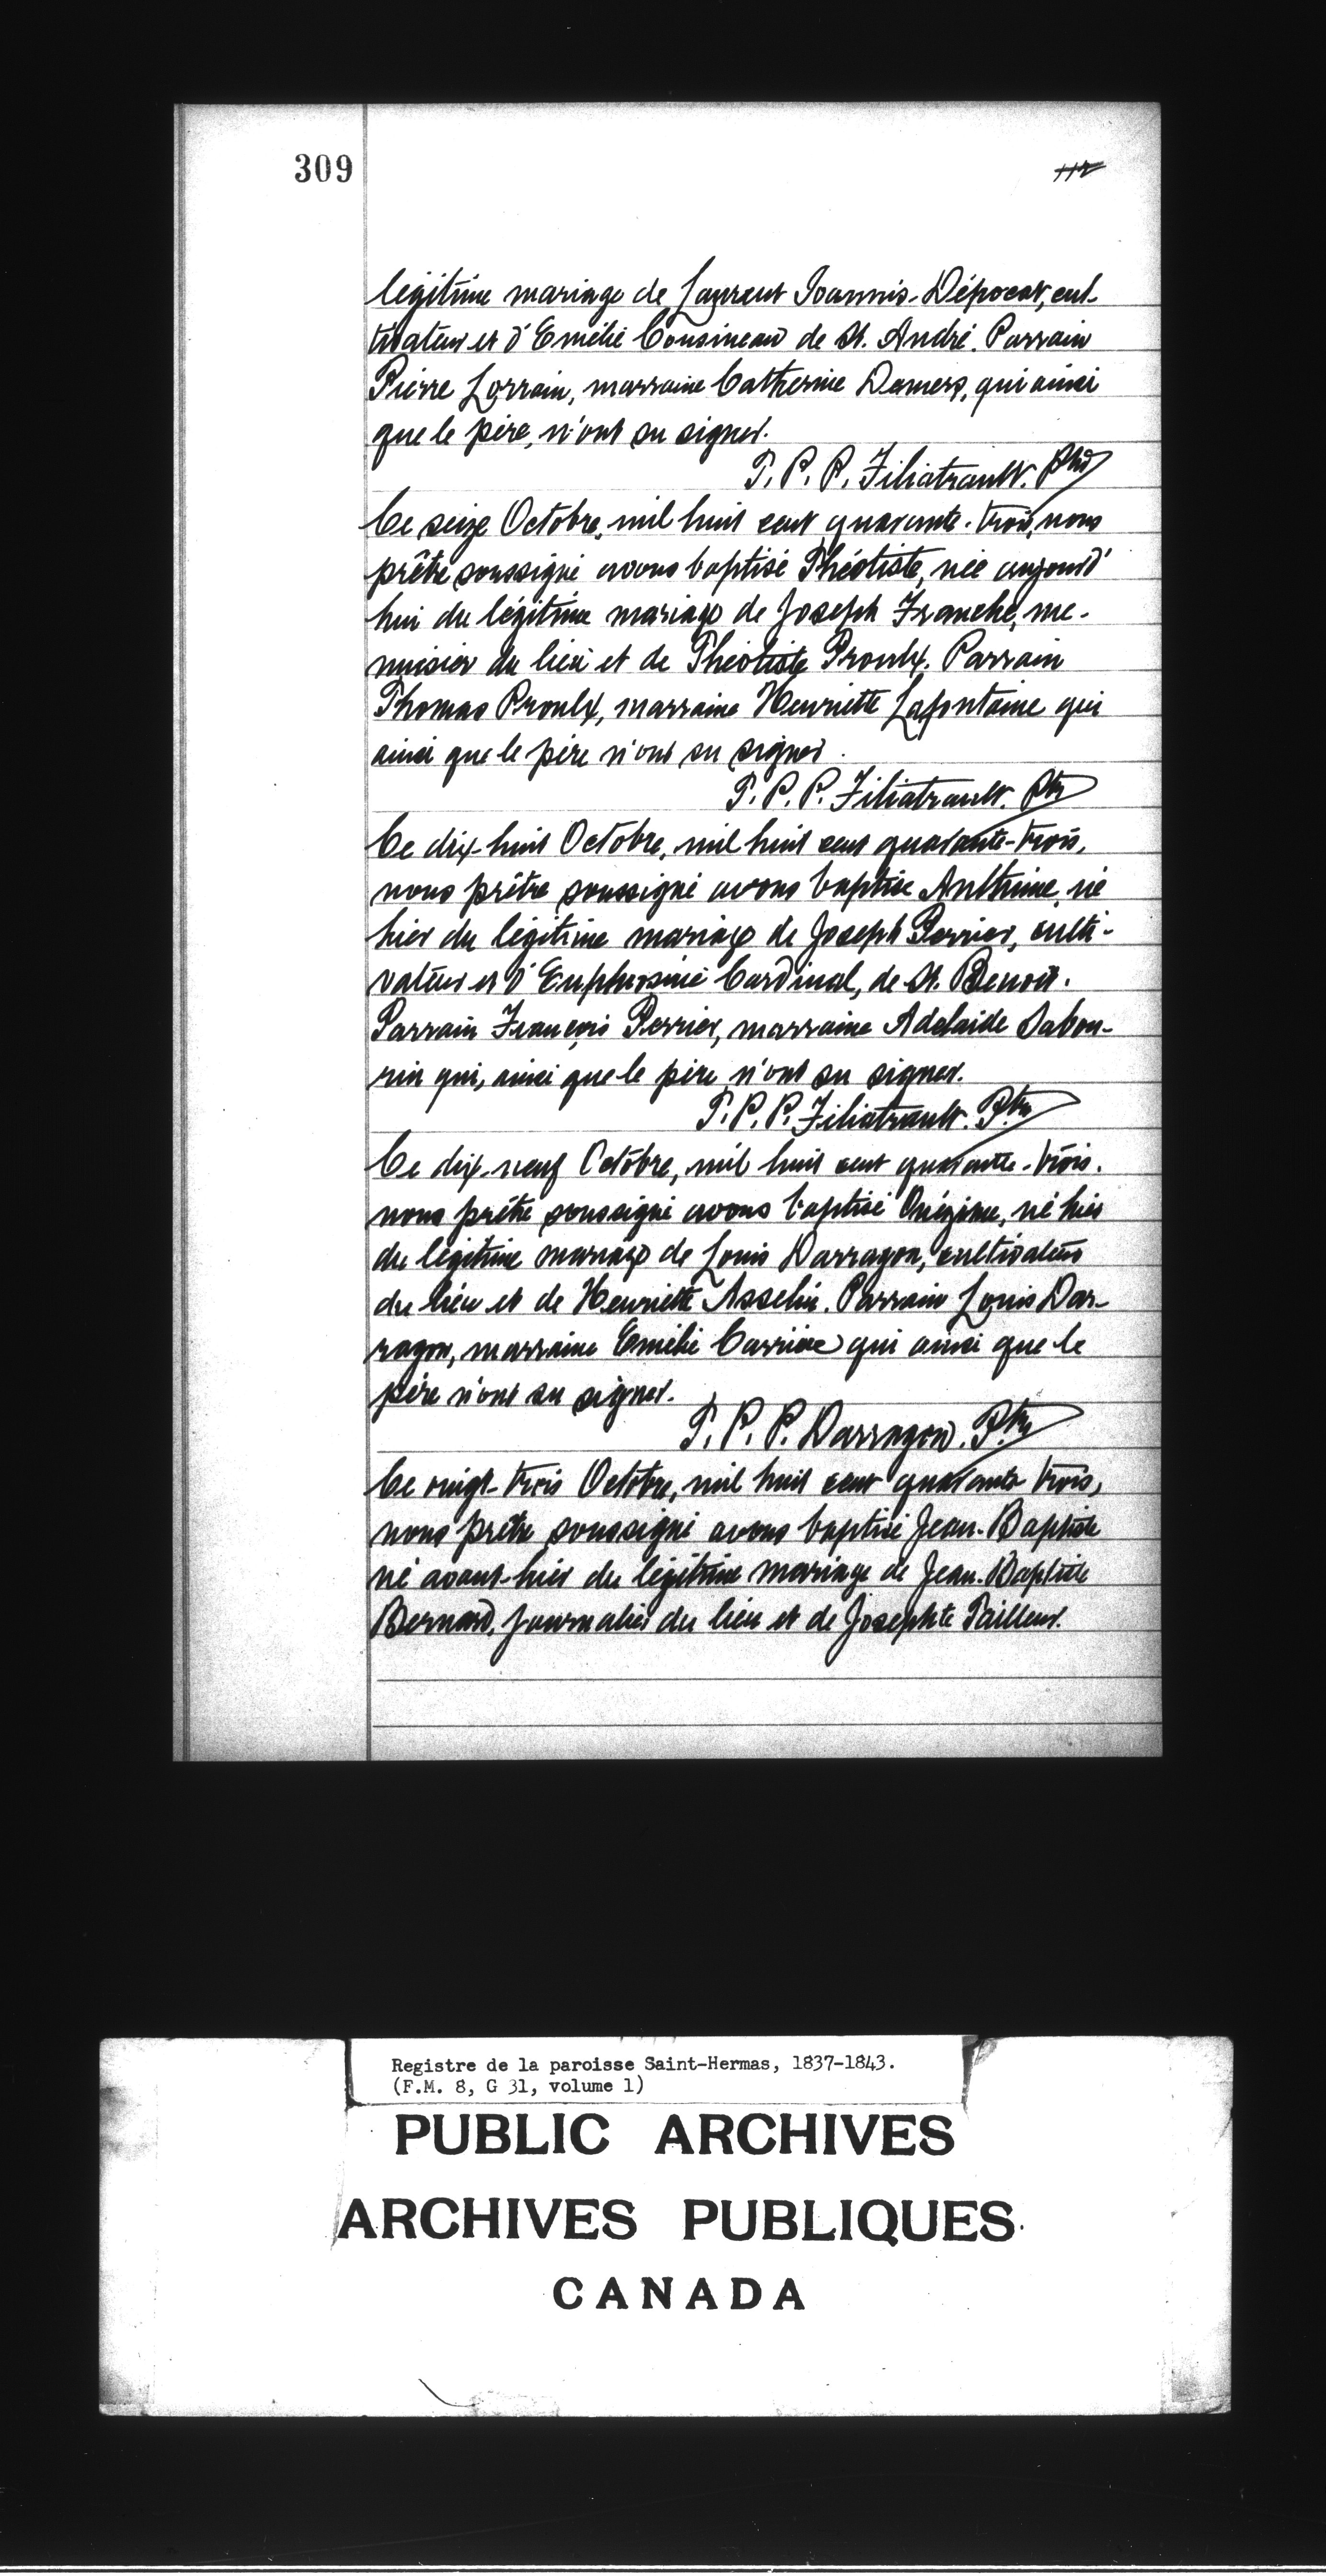 309
112
légitime mariage de Laurent Ioannis-Dépocas, cul-
tivateur et d'Emélie Cousineau de St. André. Parrain
Pierre Lorrain, marraine Catherine Damers, qui ainsi
que le père, n'ont su signer.
T. P. P. Filiatrault. Ptre
Ce seize Octobre, mil huit cent quarante-trois, nous
prêtre soussigné avons baptisé Théotiste, née aujourd'
hui du légitime mariage de Joseph Franche, me-
nuisier du lieu et de Théotiste Proulx. Parrain
Thomas Proulx, marraine Henriette Lafontaine qui
ainsi que le père n'ont su signer.
T. P. P. Filiatrault. Ptre
Ce dix-huit Octobre, mil huit cent quarante-trois,
nous prêtre soussigné avons baptisé Anthime, né
hier du légitime mariage de Joseph Perrier, culti-
vateur et d'Euphrosine Cardinal, de St. Benoit.
Parrain François Perrier, marraine Adelaide Sabou-
rin qui, ainsi que le père, n'ont su signer.
T. P. P. Filiatrault. Ptre
Ce dix-neuf Octobre, mil huit cent quarante-trois.
nous prêtre soussigné avons baptisé Onézime, né hier
du légitime mariage de Louis Darragon, cultivateur
du lieu et de Henriette Asselin. Parrain Louis Dar-
ragon, marraine Emélie Carrière qui ainsi que le
père n'ont su signer.
T. P. P. Darragon. Ptre
Ce vingt-trois Octobre, mil huit cent quarante trois,
nous prêtre soussigné avons baptisé Jean-Baptiste
né avant-hier du légitime mariage de Jean-Baptiste
Bernard, journalier du lieu et de Josephte Tailleur.
Registre de la paroisse Saint-Hermas, 1837-1843.
(F.M. 8, G 31, volume 1)
PUBLIC ARCHIVES
ARCHIVES PUBLIQUES
CANADA